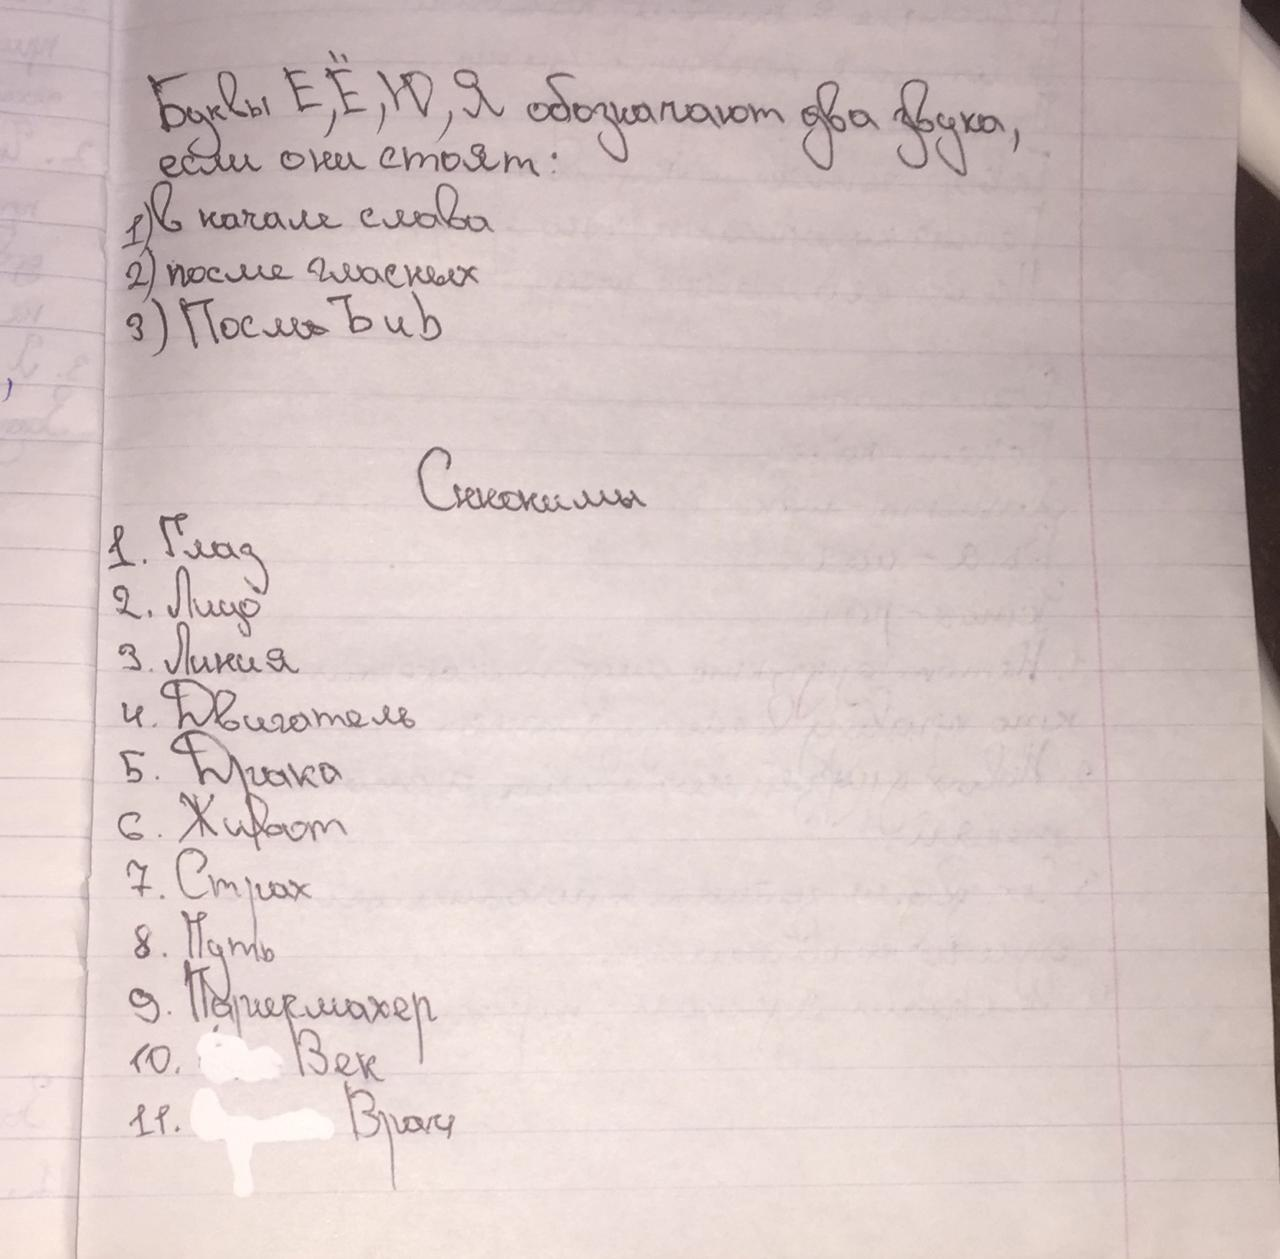 Буквы Е,Ё,Ю,Я обозначают два звука,
если они стоят:
1) в начале слова
2) после гласных
3) После Ъ и Ь
Синонимы
1. Глаз
2. Лицо
3. Линия
4. Двигатель
5. Драка
6. Живот
7. Страх
8. Путь
9. Парикмахер
10. Век
11. Врач